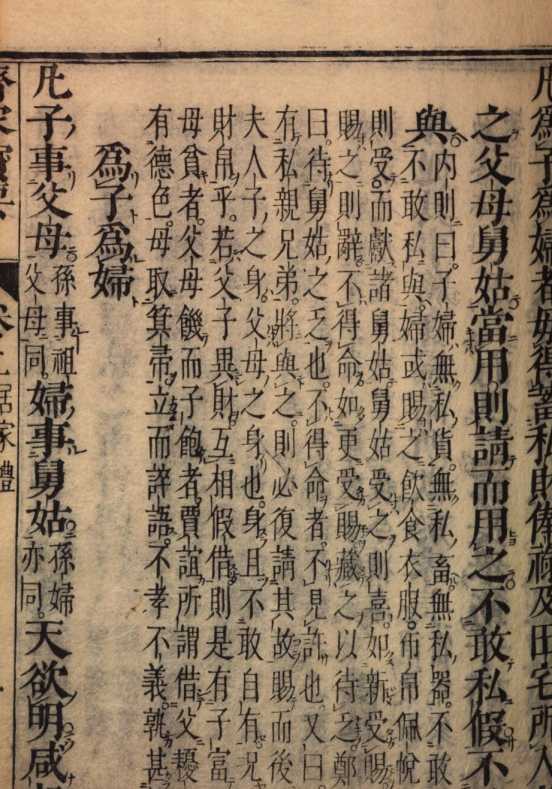 凡為子為婦者毋得蓄私財俸祿及田宅所入
之父母舅姑當用則請而用之不敢私假不
與
內則曰。子婦無私貨。無私畜。無私器。不敢
不敢私與。婦或賜之飲食衣服。布帛佩帨
則受。而獻諸舅姑。舅姑受之則喜。如新受賜
賜之則辭。不得命。如更受賜。藏之以待乏。鄭
曰。待舅姑之乏也。不得命者。不見許也。又曰。
有私親兄弟。將與之。則必復請其故賜而後
夫人子之身。父母之身也。身且不敢自有。况
財帛乎。若父子異財。互相假借。則是有子富
母貧者。父母饑而子飽者。賈誼所謂借父耰
有德色。母取箕帚。立而誶語。不孝不義。孰甚
為子為婦
凡子事父母。孫事祖父母同。婦事舅姑。孫婦亦同。天欲明咸
家寶 居家禮